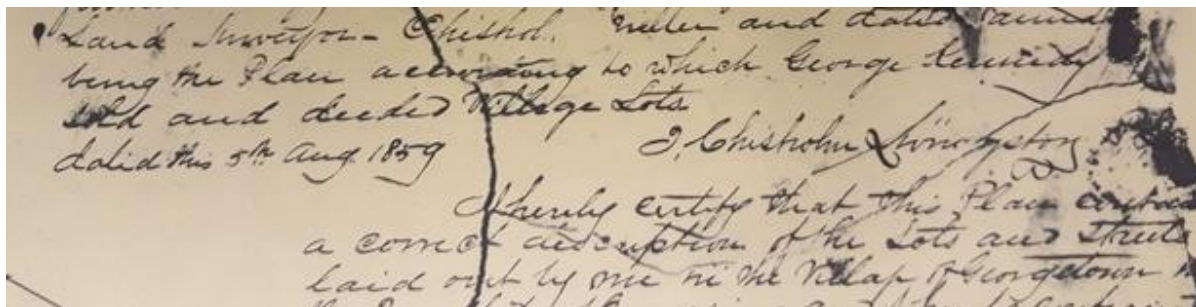 Land Surveyor - Chishol. Miller and dated
being the Plan according to which George Kennedy
sold and deeded Village Lots
dated this 5th Aug. 1859
T. Chisholm Livingston
I hereby certify that this Plan
a correct description of the Lots and Streets
laid out by me in the Village of Georgetown